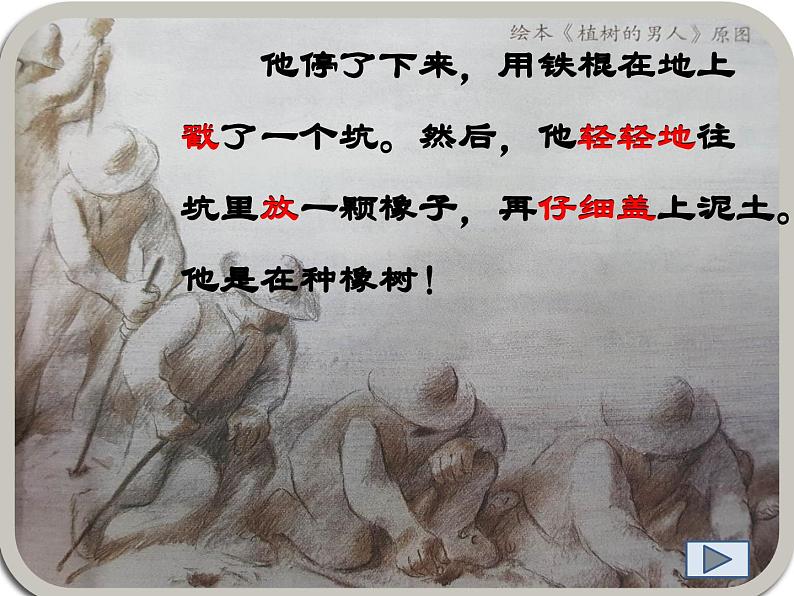 绘本《植树的男人》原图
他停了下来，用铁棍在地上
戳了一个坑。然后，他轻轻地往
坑里放一颗橡子，再仔细盖上泥土。
他是在种橡树！